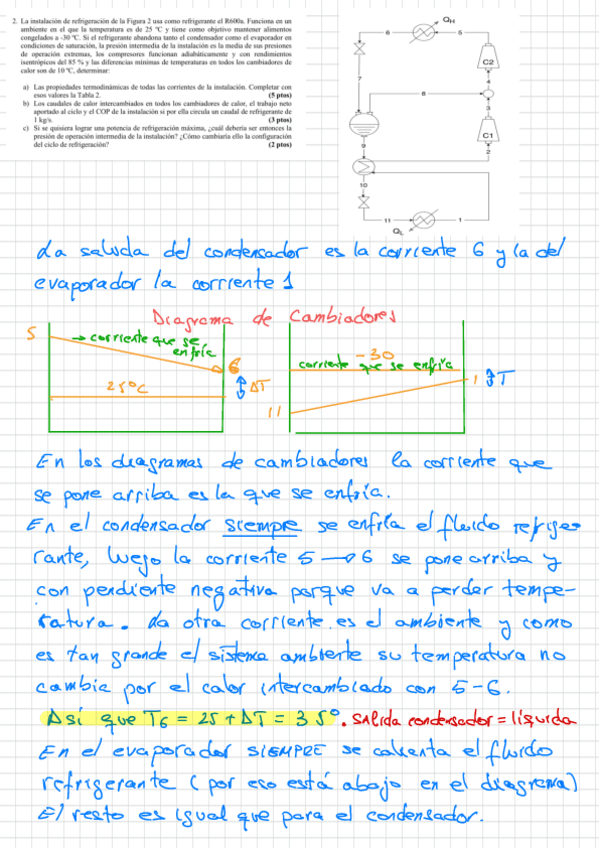 2. La instalación de refrigeración de la Figura 2 usa como refrigerante el R600a. Funciona en un
ambiente en el que la temperatura es de 25 ºC y tiene como objetivo mantener alimentos
congelados a -30 ºC. Si el refrigerante abandona tanto el condensador como el evaporador en
condiciones de saturación, la presión intermedia de la instalación es la media de sus presiones
de operación extremas, los compresores funcionan adiabáticamente y con rendimientos
isentrópicos del 85 % y las diferencias mínimas de temperaturas en todos los cambiadores de
calor son de 10 ºC, determinar:
a) Las propiedades termodinámicas de todas las corrientes de la instalación. Completar con
esos valores la Tabla 2. (5 ptos)
b) Los caudales de calor intercambiados en todos los cambiadores de calor, el trabajo neto
aportado al ciclo y el COP de la instalación si por ella circula un caudal de refrigerante de
1 kg/s. (3 ptos)
c) Si se quisiera lograr una potencia de refrigeración máxima, ¿cuál debería ser entonces la
presión de operación intermedia de la instalación? ¿Cómo cambiaría ello la configuración
del ciclo de refrigeración? (2 ptos)
QH
6
5
C2
7
4
8
3
C1
9
2
10
11
1
QL
La salida del condensador es la corriente 6 y la del
evaporador la corriente 1
Diagrama de Cambiadores
5
→ corriente que se
enfría
6
ΔT
25ºC
-30
corriente que se enfría
1
T
11
En los diagramas de cambiadores la corriente que
se pone arriba es la que se enfría.
En el condensador SIEMPRE se enfría el fluido refrige-
rante, luego la corriente 5 → 6 se pone arriba y
con pendiente negativa porque va a perder tempe-
ratura. La otra corriente es el ambiente y como
es tan grande el sistema ambiente su temperatura no
cambia por el calor intercambiado con 5-6.
Así que T6 = 25 + ΔT = 35º. Salida condensador = líquida
En el evaporador SIEMPRE se calienta el fluido
refrigerante (por eso está abajo en el diagrama)
El resto es igual que para el condensador.